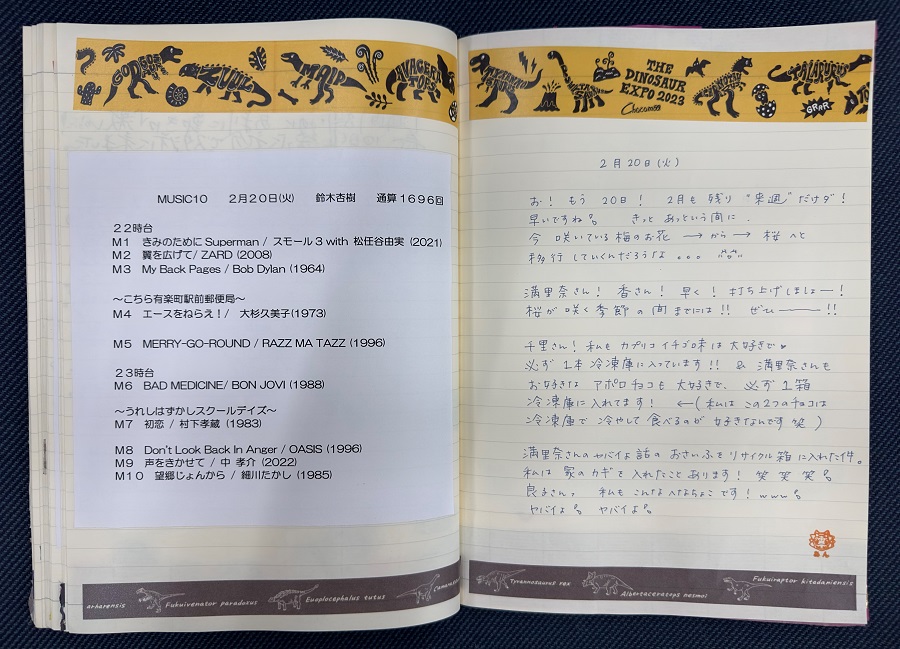 GORGOSAURUS
ZUUL
MAIP
THE
DINOSAUR
EXPO 2023
Chocomoo
GRRR
MUSIC10 2月20日(火) 鈴木杏樹 通算1696回
22時台
M1 きみのために Superman / スモール3 with 松任谷由実 (2021)
M2 翼を広げて/ ZARD (2008)
M3 My Back Pages / Bob Dylan (1964)
～こちら有楽町駅前郵便局～
M4 エースをねらえ!/ 大杉久美子(1973)
M5 MERRY-GO-ROUND / RAZZ MA TAZZ (1996)
23時台
M6 BAD MEDICINE/ BON JOVI (1988)
～うれしはずかしスクールデイズ～
M7 初恋 / 村下孝蔵 (1983)
M8 Don't Look Back In Anger / OASIS (1996)
M9 声をきかせて / 中 孝介 (2022)
M10 望郷じょんから / 細川たかし (1985)
arharensis Fukuivenator paradoxus Euoplocephalus tutus
2月20日(火)
お! もう 20日! 2月も 残り "来週" だけダ!
早いですね。 きっと あっという間に.
今 咲いている 梅のお花 → から → 桜 へと
移行 していくんだろうな 。。。
満里奈さん! 香さん! 早く! 打ち上げしましょー!
桜が 咲く 季節 の 間 までには!! ぜひ ー !!
千里さん! 私も カプリコ イチゴ味は 大好きで♥
必ず 1本 冷凍庫に入っています!! & 満里奈さんも
お好きな アポロチョコも 大好きで、 必ず 1箱
冷凍庫に 入れてます! ←( 私は この2つのチョコは
冷凍庫で 冷やして 食べるのが 好きなんです 笑 )
満里奈さんの ヤバイよ 話の おさいふを リサイクル 箱 に入れた件。
私は 家の カギ を 入れたこと あります! 笑 笑 笑。
良子さんっ 私も こんな へなちょこ です! www。
ヤバイよ。 ヤバイよ。
Tyrannosaurus rex Albertaceratops nesmoi Fukuiraptor kitadaniensis